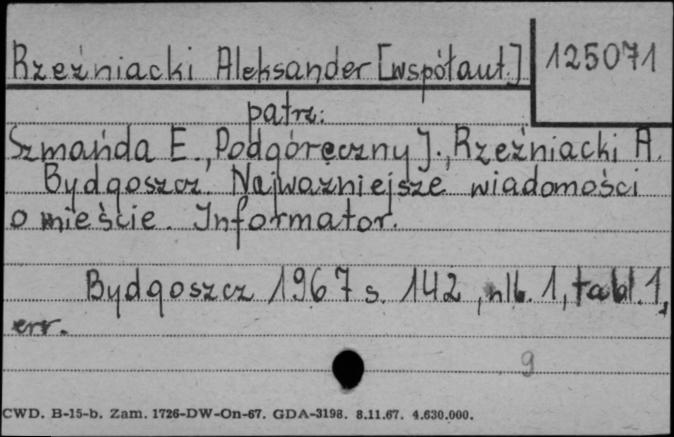 Rzeźniacki Aleksander [współaut.]
125071
patrz:
Szmańda E., Podgóreczny J., Rzeźniacki A.
Bydgoszcz. Najważniejsze wiadomości
o mieście. Informator.
Bydgoszcz 1967 s. 142, nlb. 1, tabl. 1,
err.
9
CWD. B-15-b. Zam. 1726-DW-On-67. GDA-3198. 8.11.67. 4.630.000.